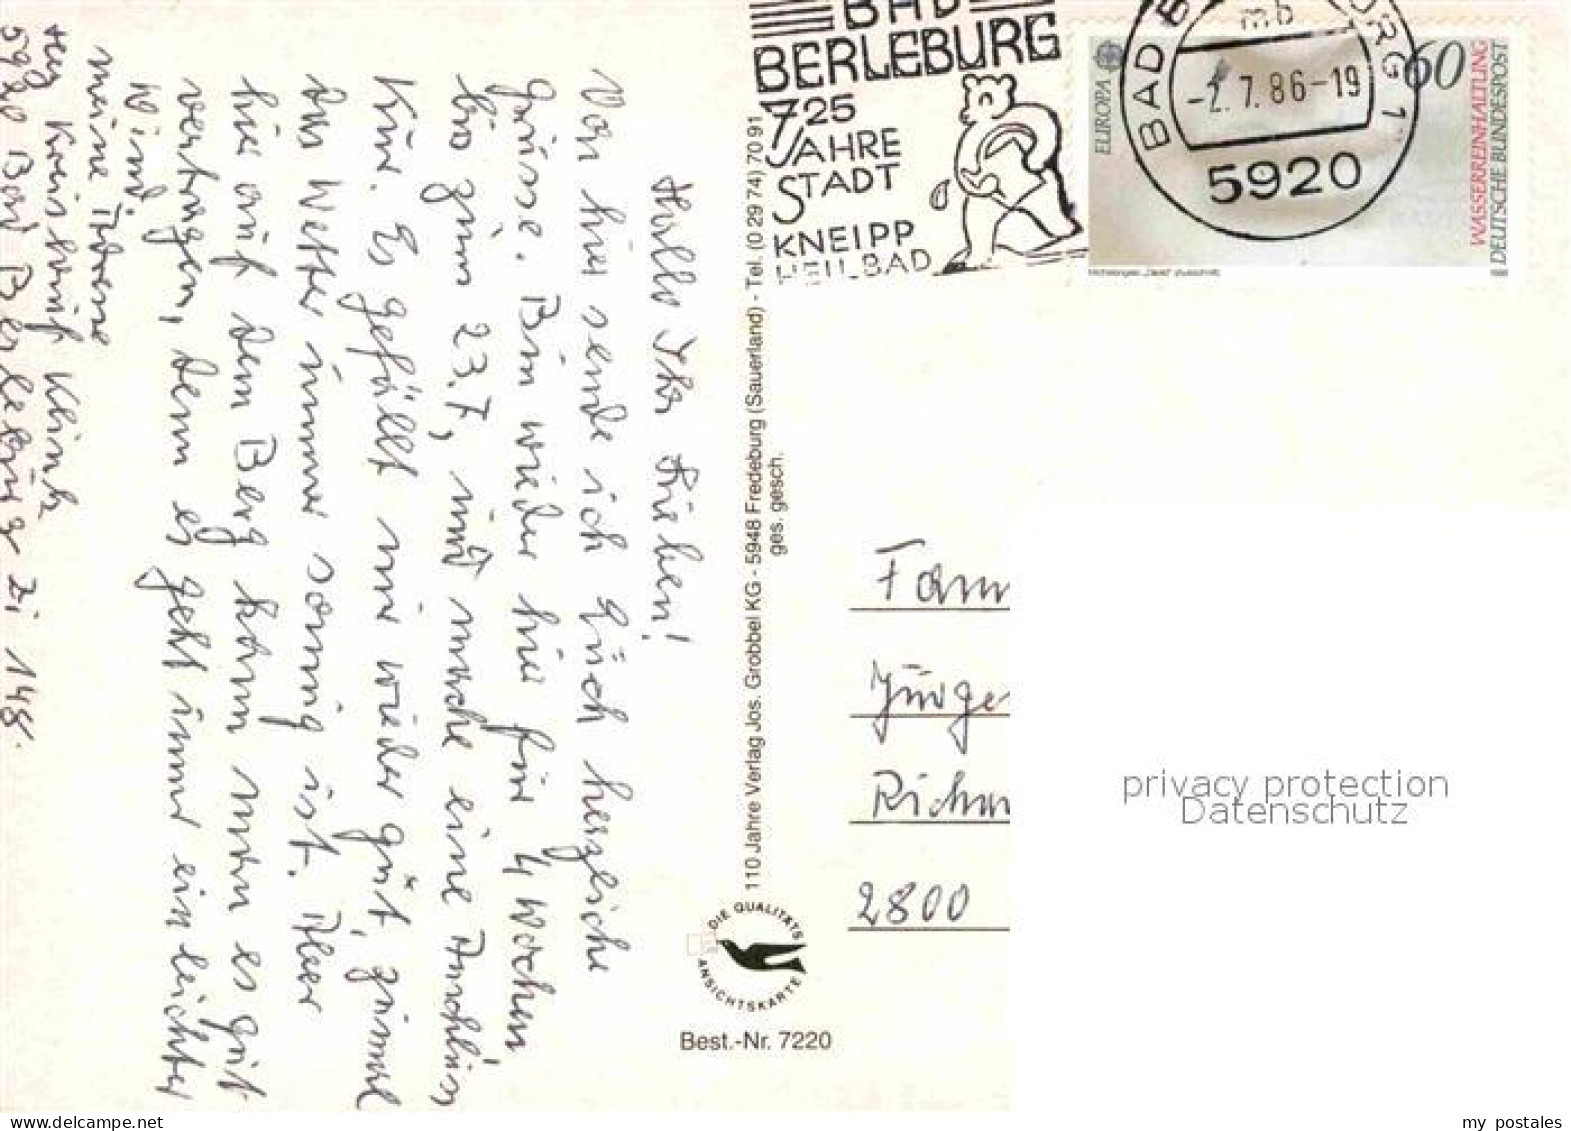 Hallo Ihr Lieben!
Von hier sende ich Euch herzliche
Grüsse. Bin wieder hier für 4 Wochen
bis zum 23.7, und mache eine
Kur. Es gefällt mir wieder gut, zumal
das Wetter immer sonnig ist. Aber
hier auf dem Berg kann man es gut
vertragen, denn es geht immer ein leichter
Wind.
meine Adresse
Klinik
5920 Bad Berleburg Zi 148.
BAD
BERLEBURG
725
JAHRE
STADT
KNEIPP
HEILBAD
BAD BERLEBURG 1
mb
-2.7.86-19
5920
EUROPA
60
WASSERREINHALTUNG
DEUTSCHE BUNDESPOST
Michelangelo, „David“ (Ausschnitt)
1986
110 Jahre Verlag Jos. Grobbel KG - 5948 Fredeburg (Sauerland) - Tel. (0 29 74) 70 91
ges. gesch.
DIE QUALITÄTS
ANSICHTSKARTE
Best.-Nr. 7220
Fam
Jürge
Richar
2800
privacy protection
Datenschutz
www.ansichtskartenversand.com
my postales